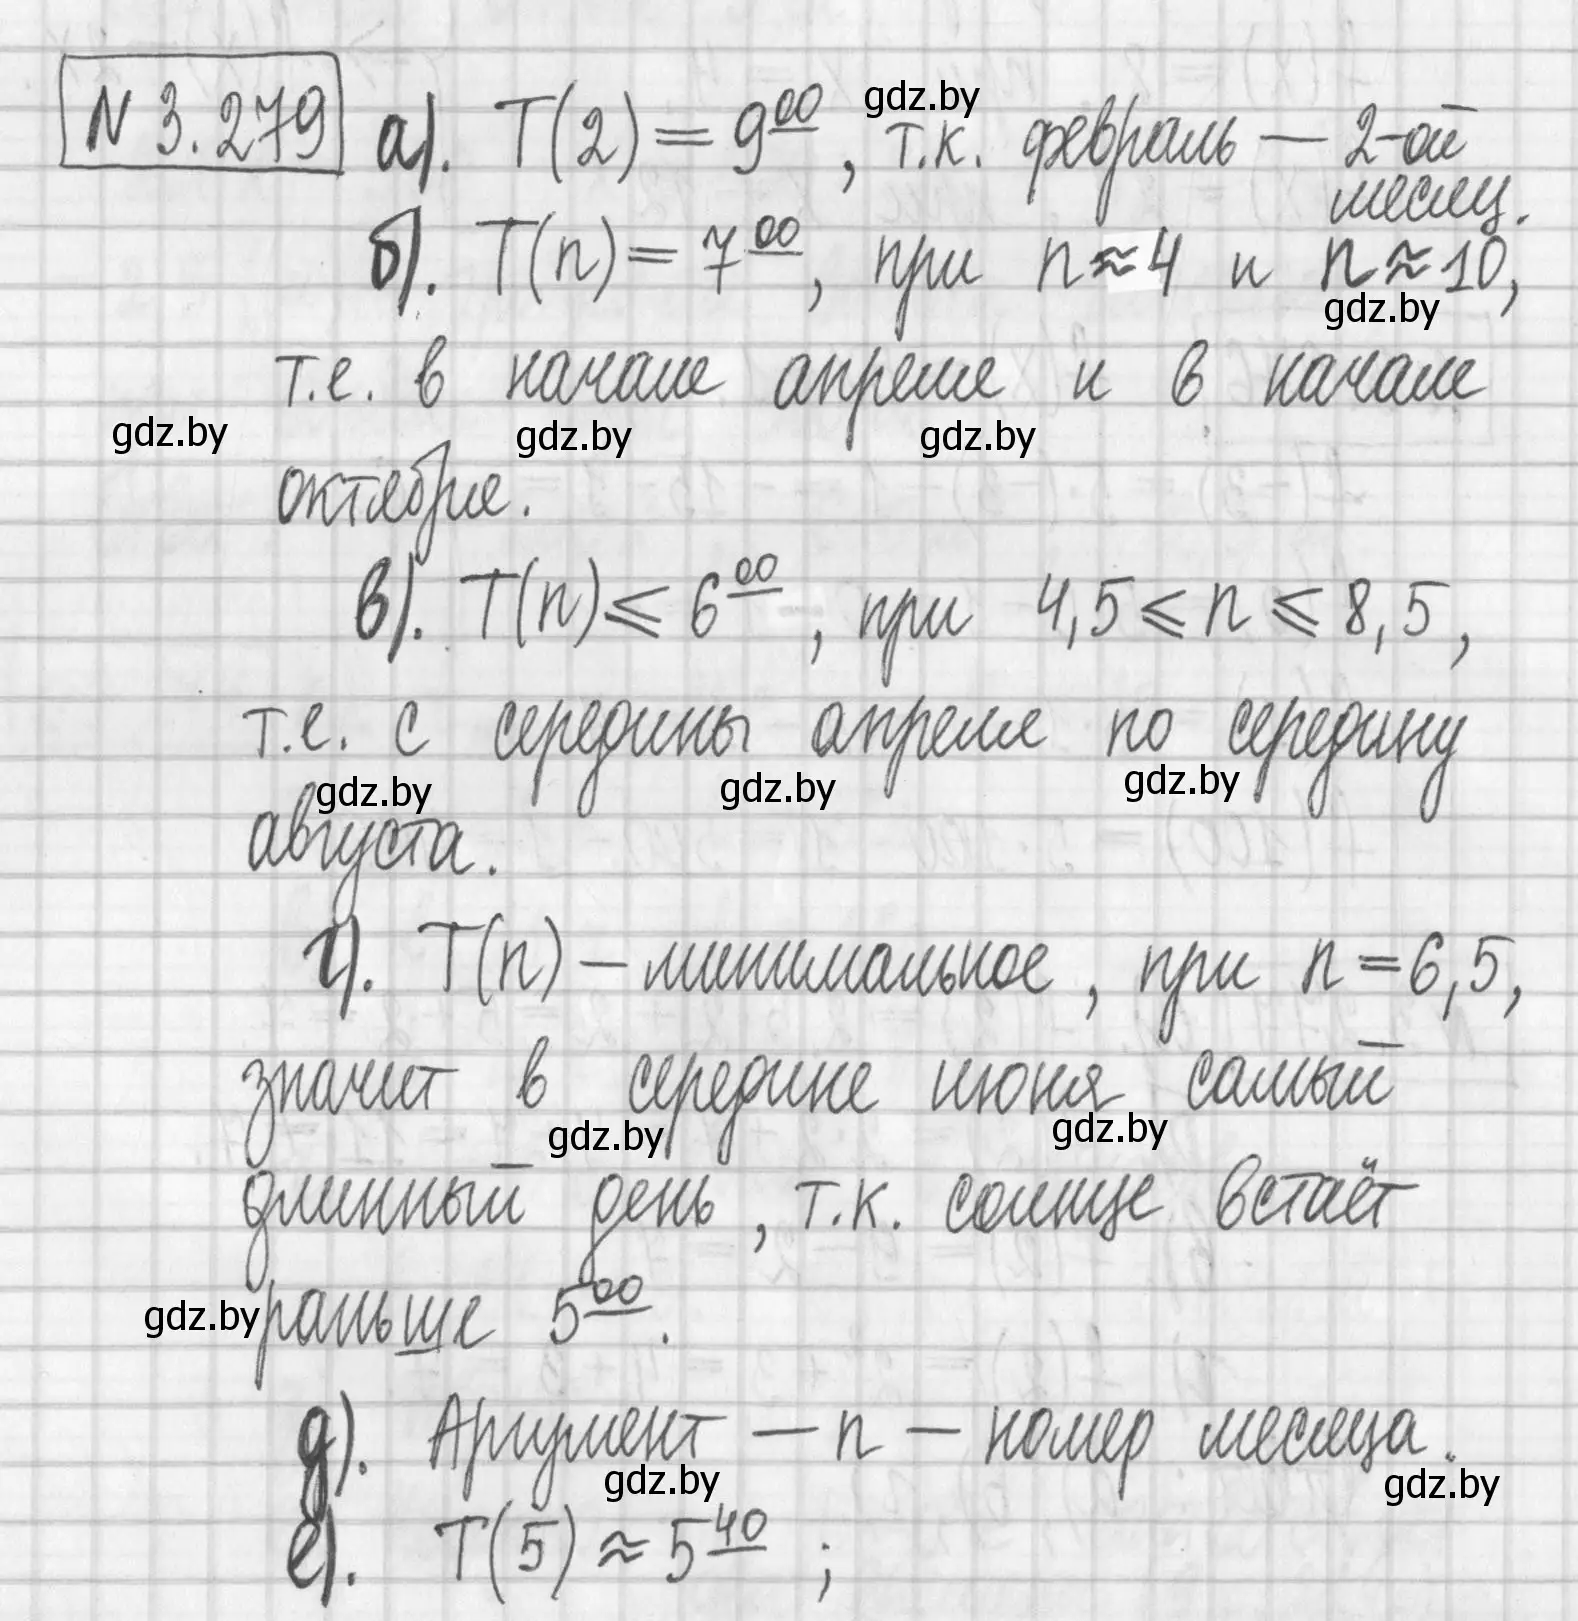 N 3.279 а). T(2) = 9⁰⁰, т.к. февраль — 2-ой
gdz.by
месяц.
б). T(n) = 7⁰⁰, при n ≈ 4 и n ≈ 10,
gdz.by
т.е. в начале апреля и в начале
gdz.by gdz.by gdz.by
октября.
в). T(n) ⩽ 6⁰⁰, при 4,5 ⩽ n ⩽ 8,5,
т.е. с середины апреля по середину
gdz.by gdz.by gdz.by
августа.
г). T(n) – минимальное, при n = 6,5,
значит в середине июня самый
gdz.by gdz.by
длинный день, т.к. солнце встаёт
gdz.by раньше 5⁰⁰.
д). Аргумент — n — номер месяца.
gdz.by gdz.by
е). T(5) ≈ 5⁴⁰;